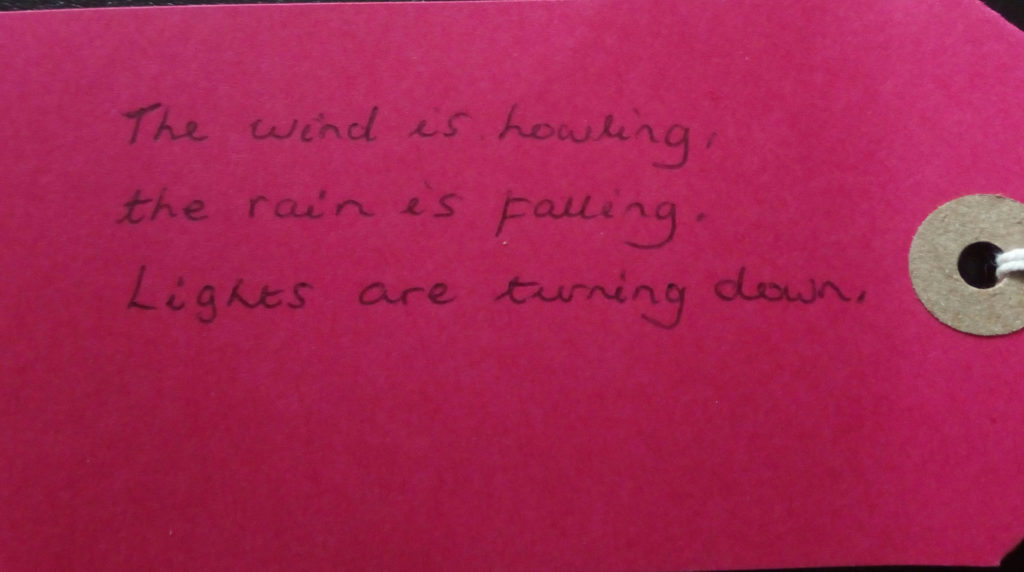 The wind is howling,
the rain is falling.
Lights are turning down.